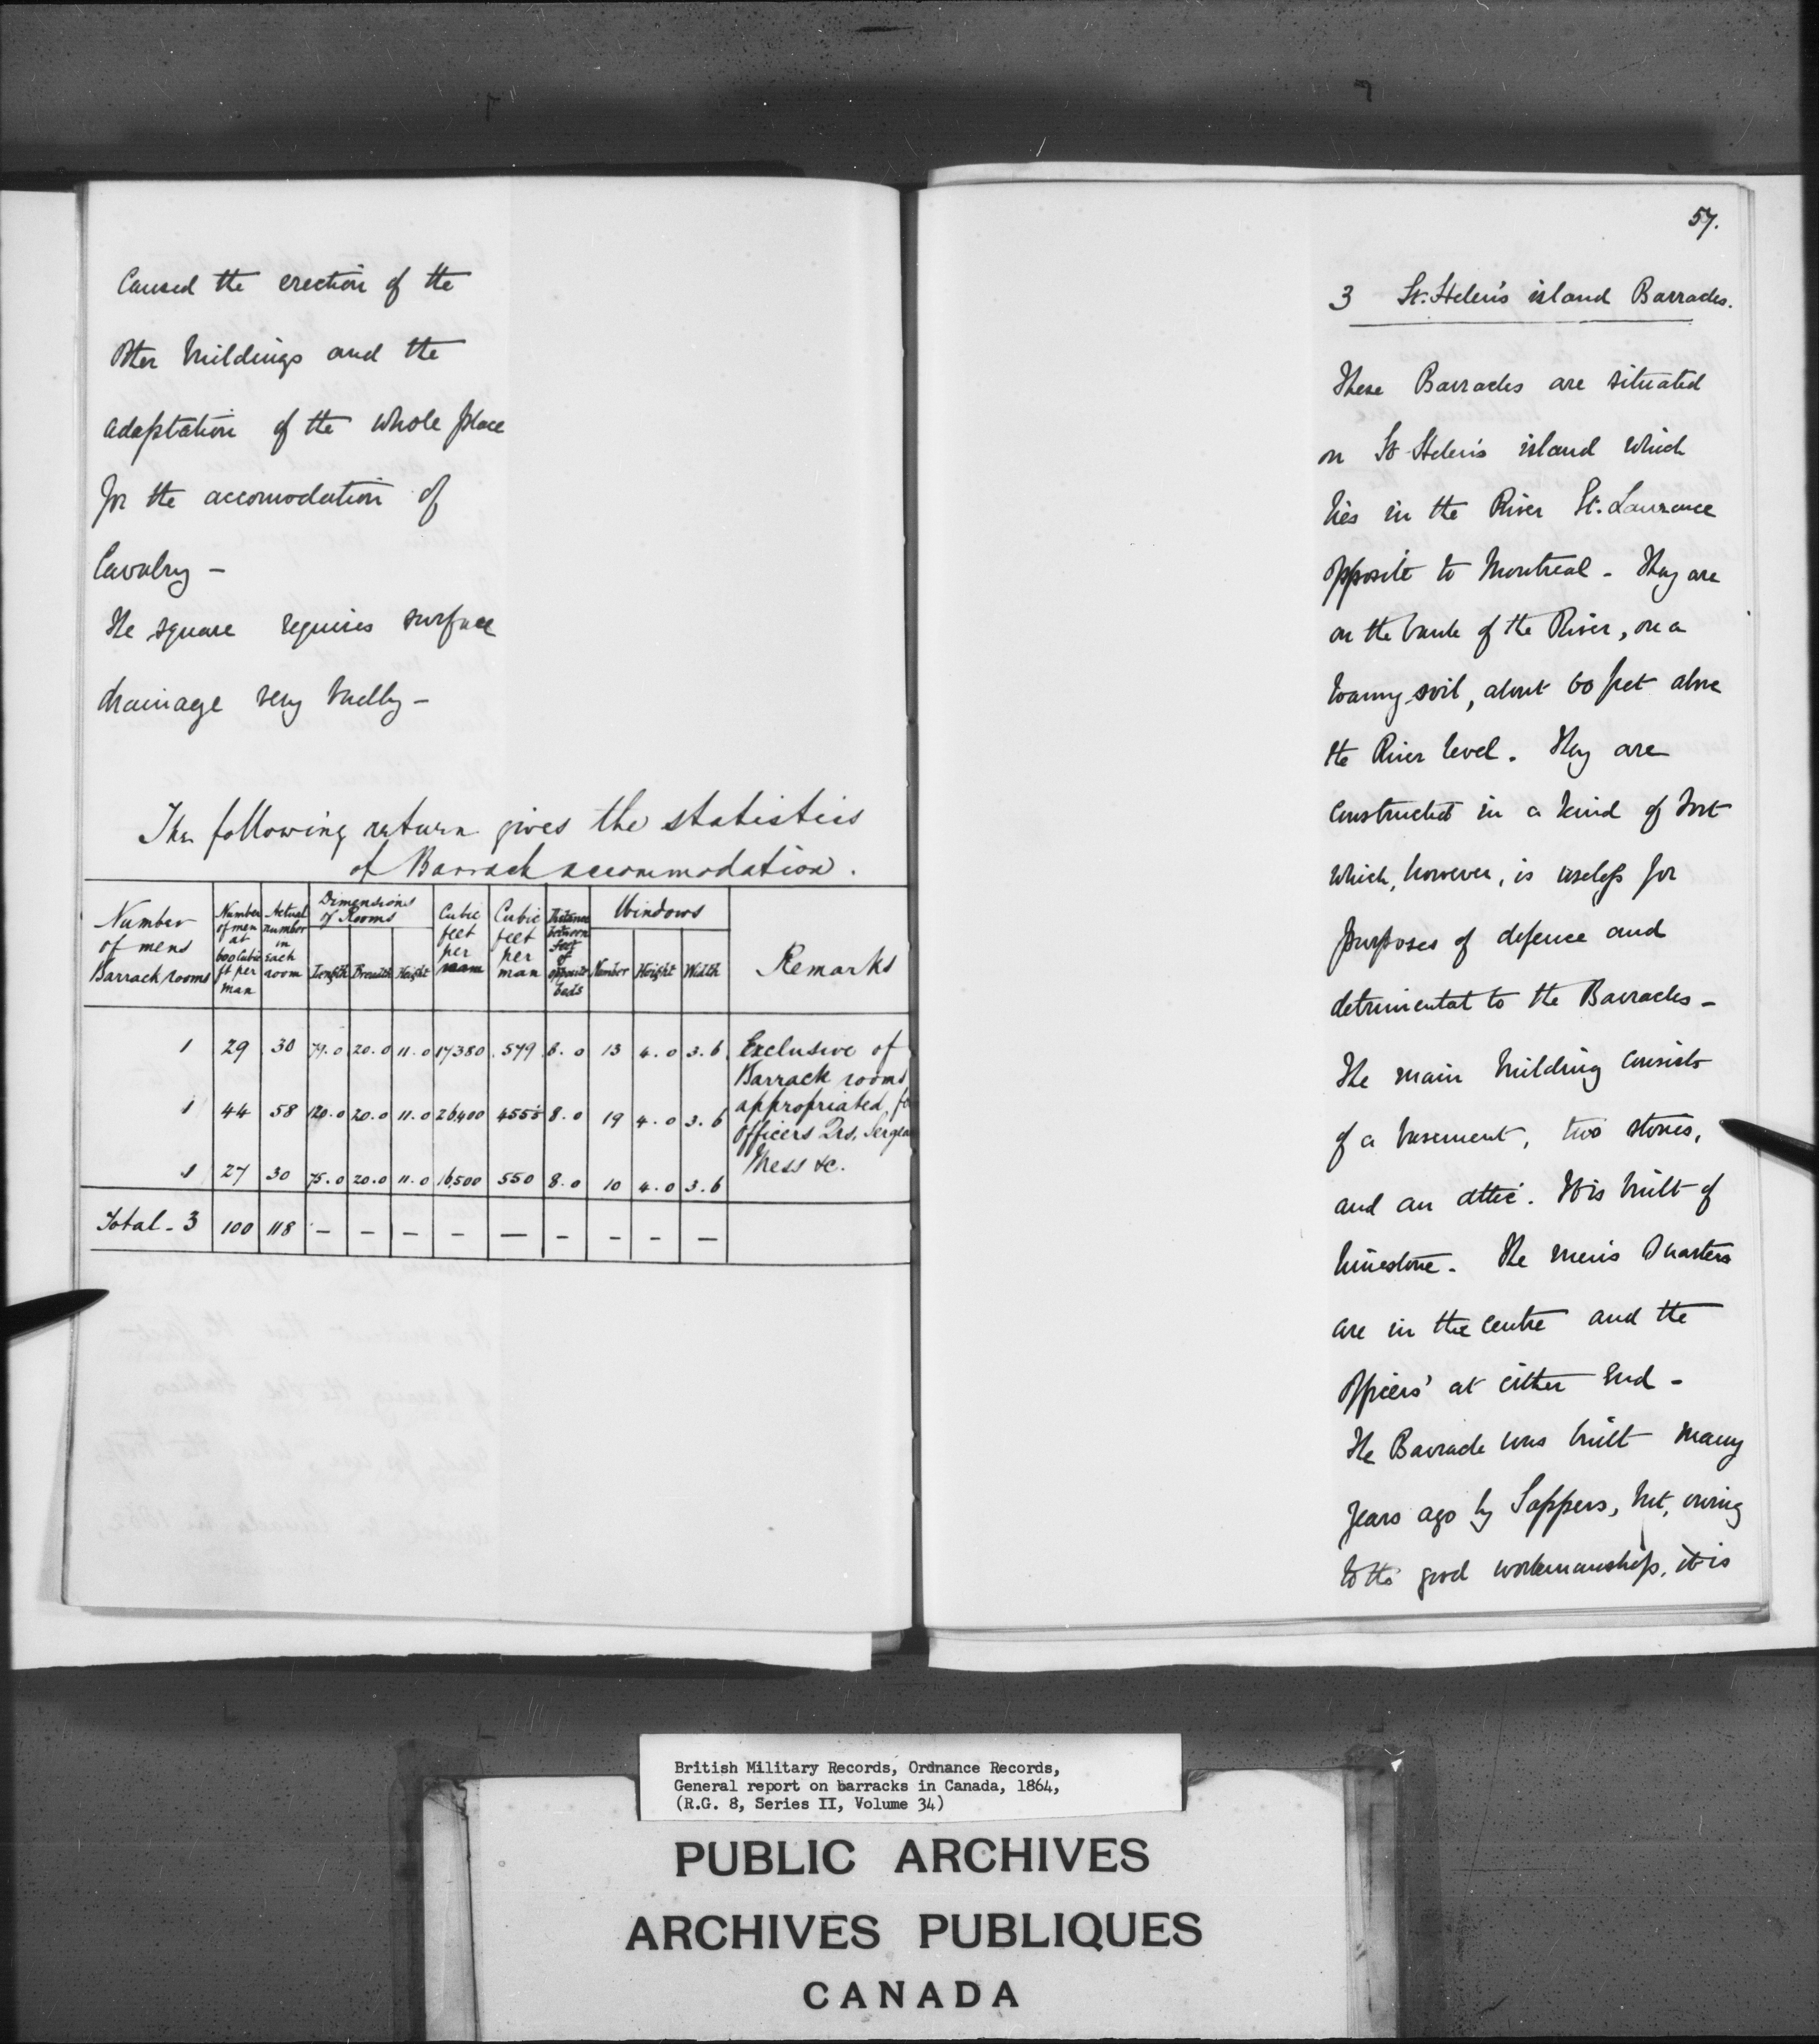 Caused the erection of the
other buildings and the
adaptation of the whole place
for the accomodation of
Cavalry –
The square requires surface
drainage very badly –
The following return gives the statistics
of Barrack accommodation.
Number of mens Barrack rooms | Number of men at 600 Cubic ft per man | Actual number in each room | Dimensions of Rooms | Cubic feet per room | Cubic feet per man | Distance between feet of opposite beds | Windows | Remarks
Length | Breadth | Height | Number | Height | Width
1 | 29 | 30 | 79.0 | 20.0 | 11.0 | 17380 | 579 | 8.0 | 13 | 4.0 | 3.6 | Exclusive of
Barrack rooms
1 | 44 | 58 | 120.0 | 20.0 | 11.0 | 26,400 | 455 | 8.0 | 19 | 4.0 | 3.6 | appropriated
Officers Qrs.
1 | 27 | 30 | 75.0 | 20.0 | 11.0 | 16,500 | 550 | 8.0 | 10 | 4.0 | 3.6 | Mess &c.
Total - 3 | 100 | 118 | – | – | – | – | – | – | – | – | –
57.
3 St. Helen's island Barracks.
These Barracks are situated
on St Helen's island which
lies in the River St. Lawrence
opposite to Montreal – They are
on the bank of the River, on a
loamy soil, about 60 feet above
the River level. They are
constructed in a kind of Fort
which, however, is useless for
purposes of defence and
detrimental to the Barracks –
The main building consists
of a basement, two stories,
and an attic. It is built of
limestone. The men's Quarters
are in the centre and the
Officers' at either end –
The Barrack was built many
years ago by Sappers, but, owing
to the good workmanship, it is
British Military Records, Ordnance Records,
General report on barracks in Canada, 1864,
(R.G. 8, Series II, Volume 34)
PUBLIC ARCHIVES
ARCHIVES PUBLIQUES
CANADA